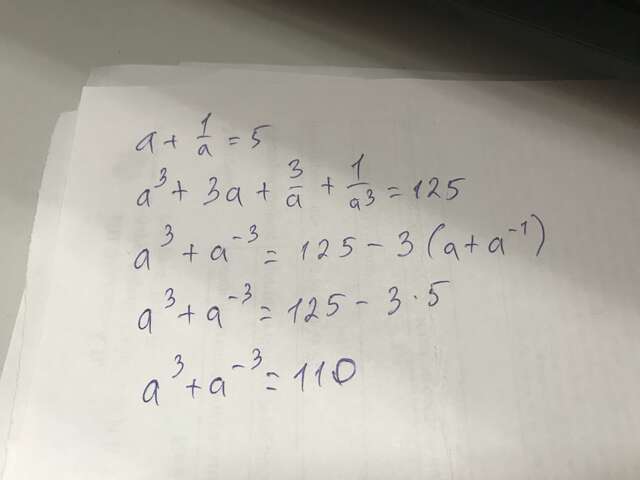 a + 1/a = 5
a³ + 3a + 3/a + 1/a³ = 125
a³ + a⁻³ = 125 - 3 (a + a⁻¹)
a³ + a⁻³ = 125 - 3 · 5
a³ + a⁻³ = 110